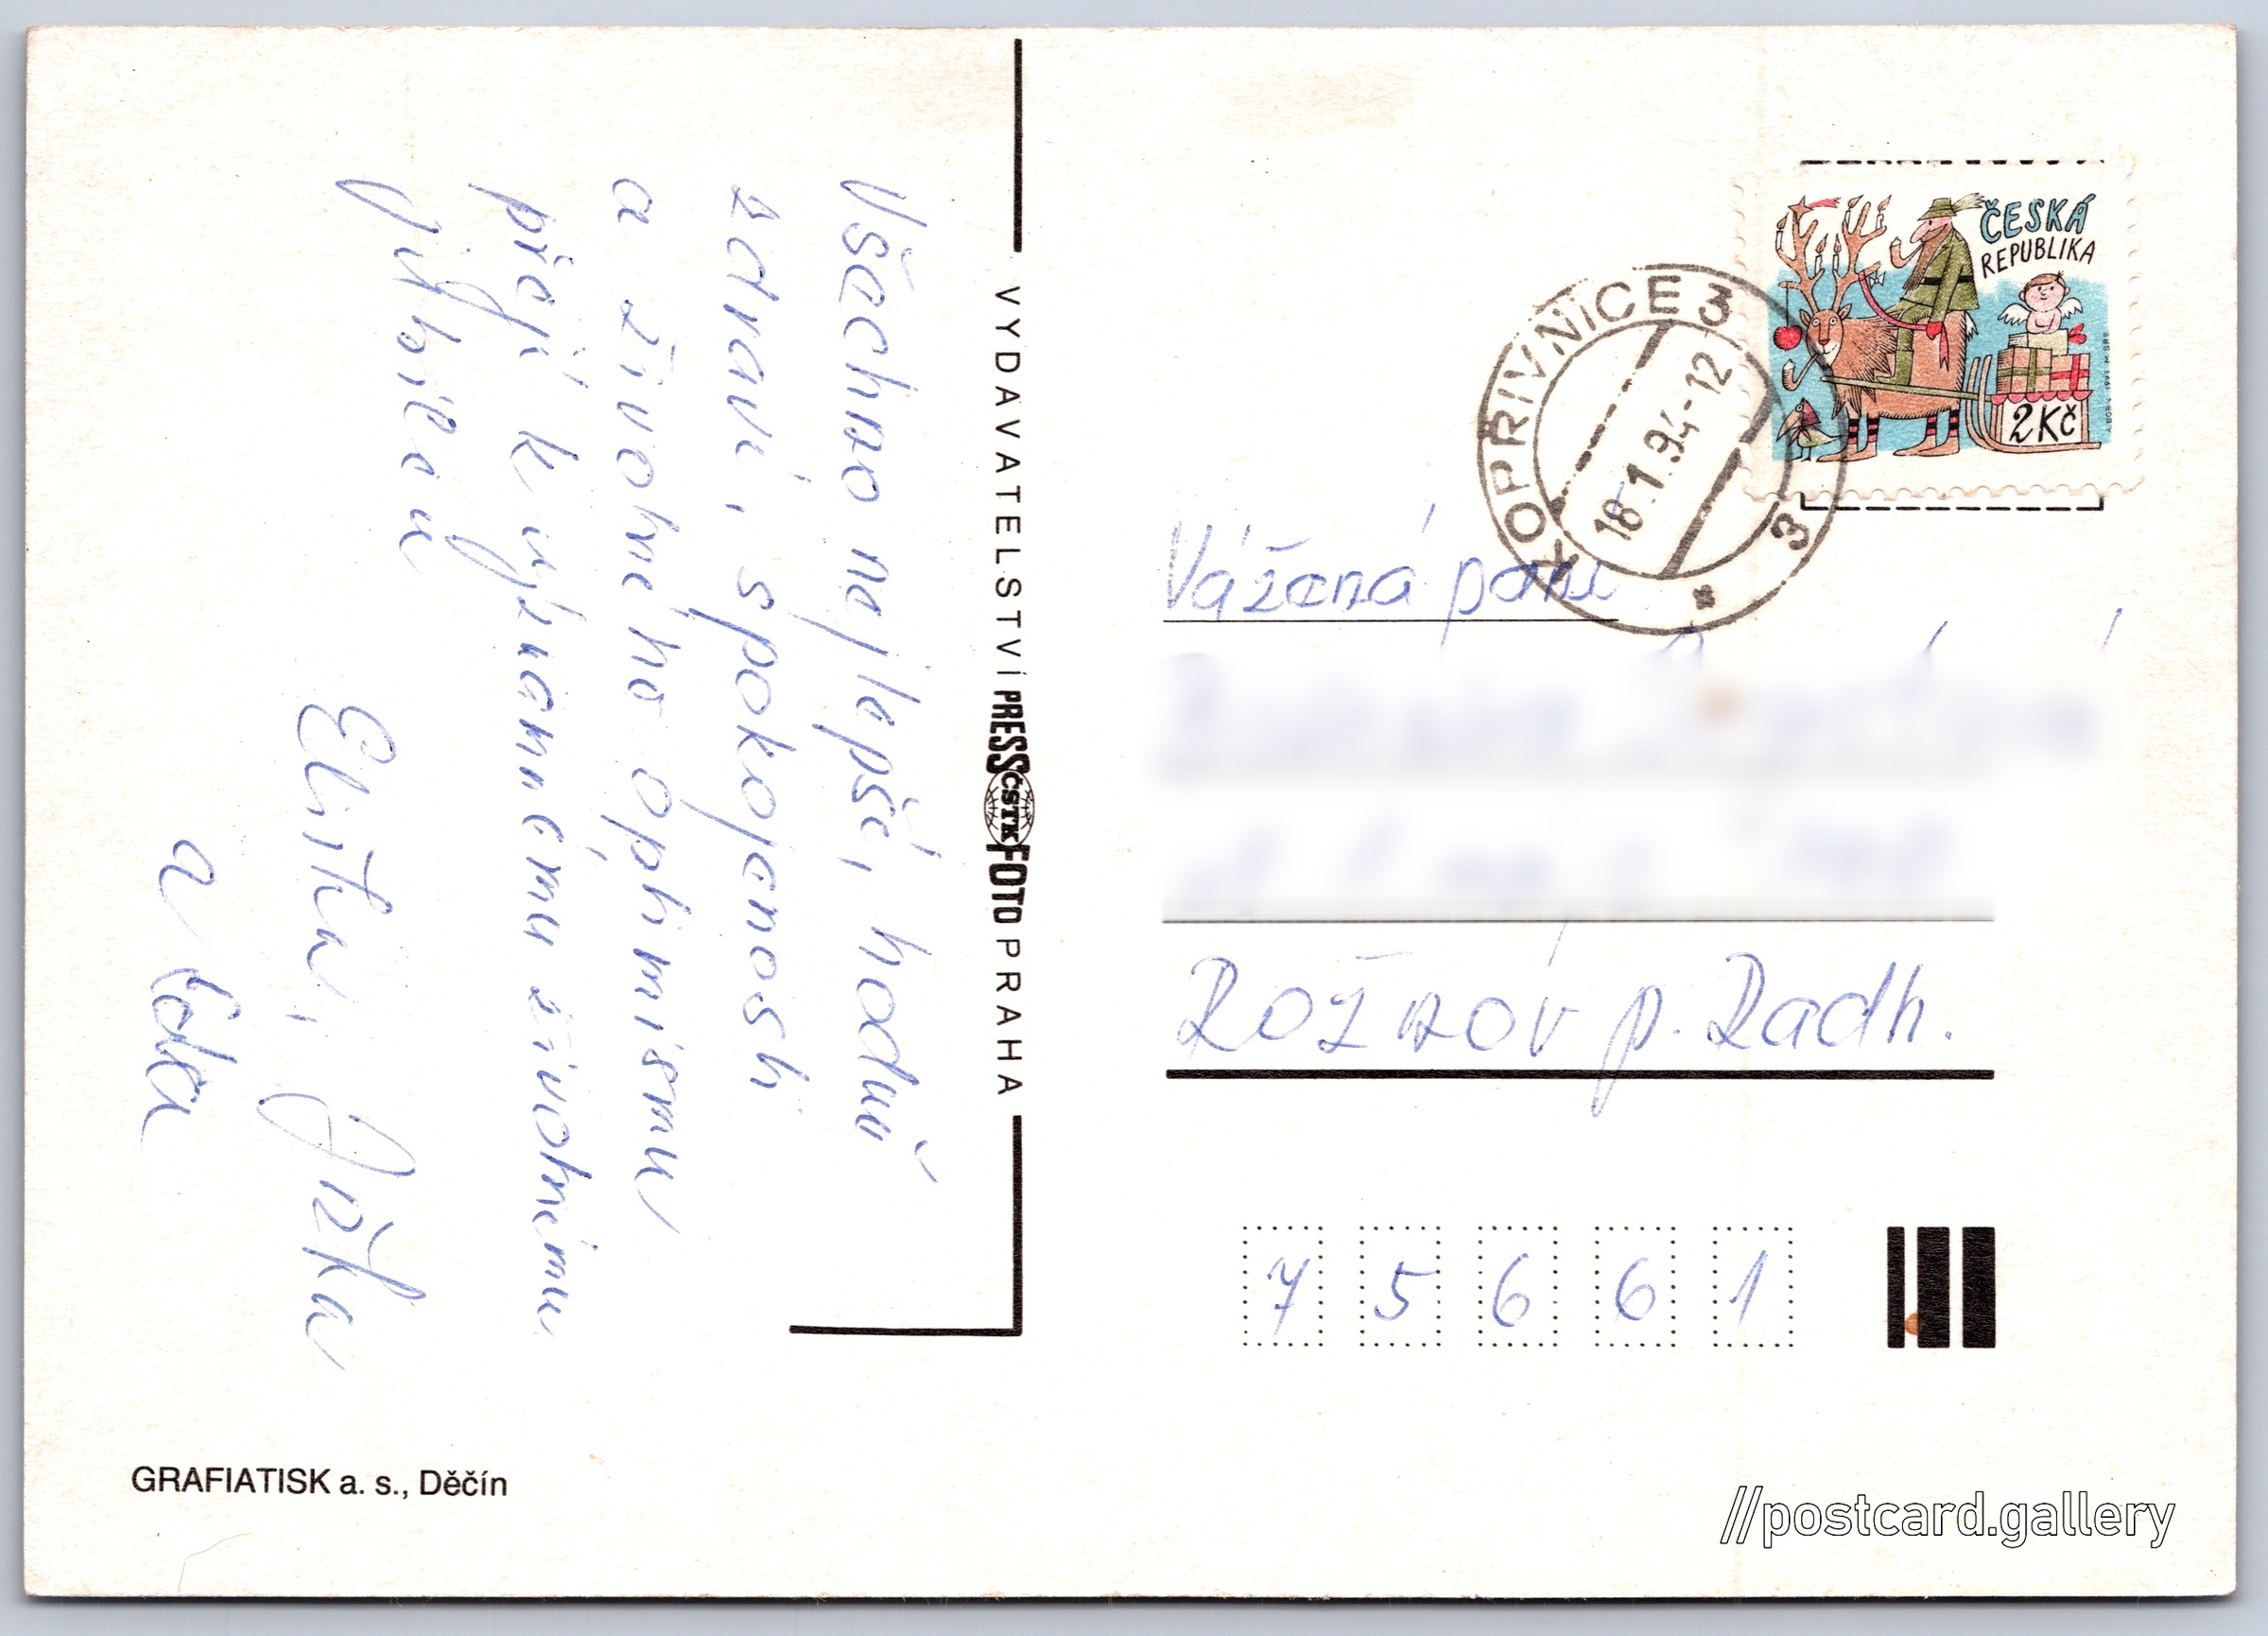 Všechno nejlepší, hodně
zdraví, spokojenosti
a životného optimismu
přejí k významnému životnímu
jubileu
Eliška, Jirka
a Eda
VYDAVATELSTVÍ PRESSFOTO PRAHA
ČSTK
ČESKÁ
REPUBLIKA
2Kč
KOPŘIVNICE 3
18.1.94-12
3
Vážená paní
Rožnov p. Radh.
7 5 6 6 1
GRAFIATISK a. s., Děčín
//postcard.gallery